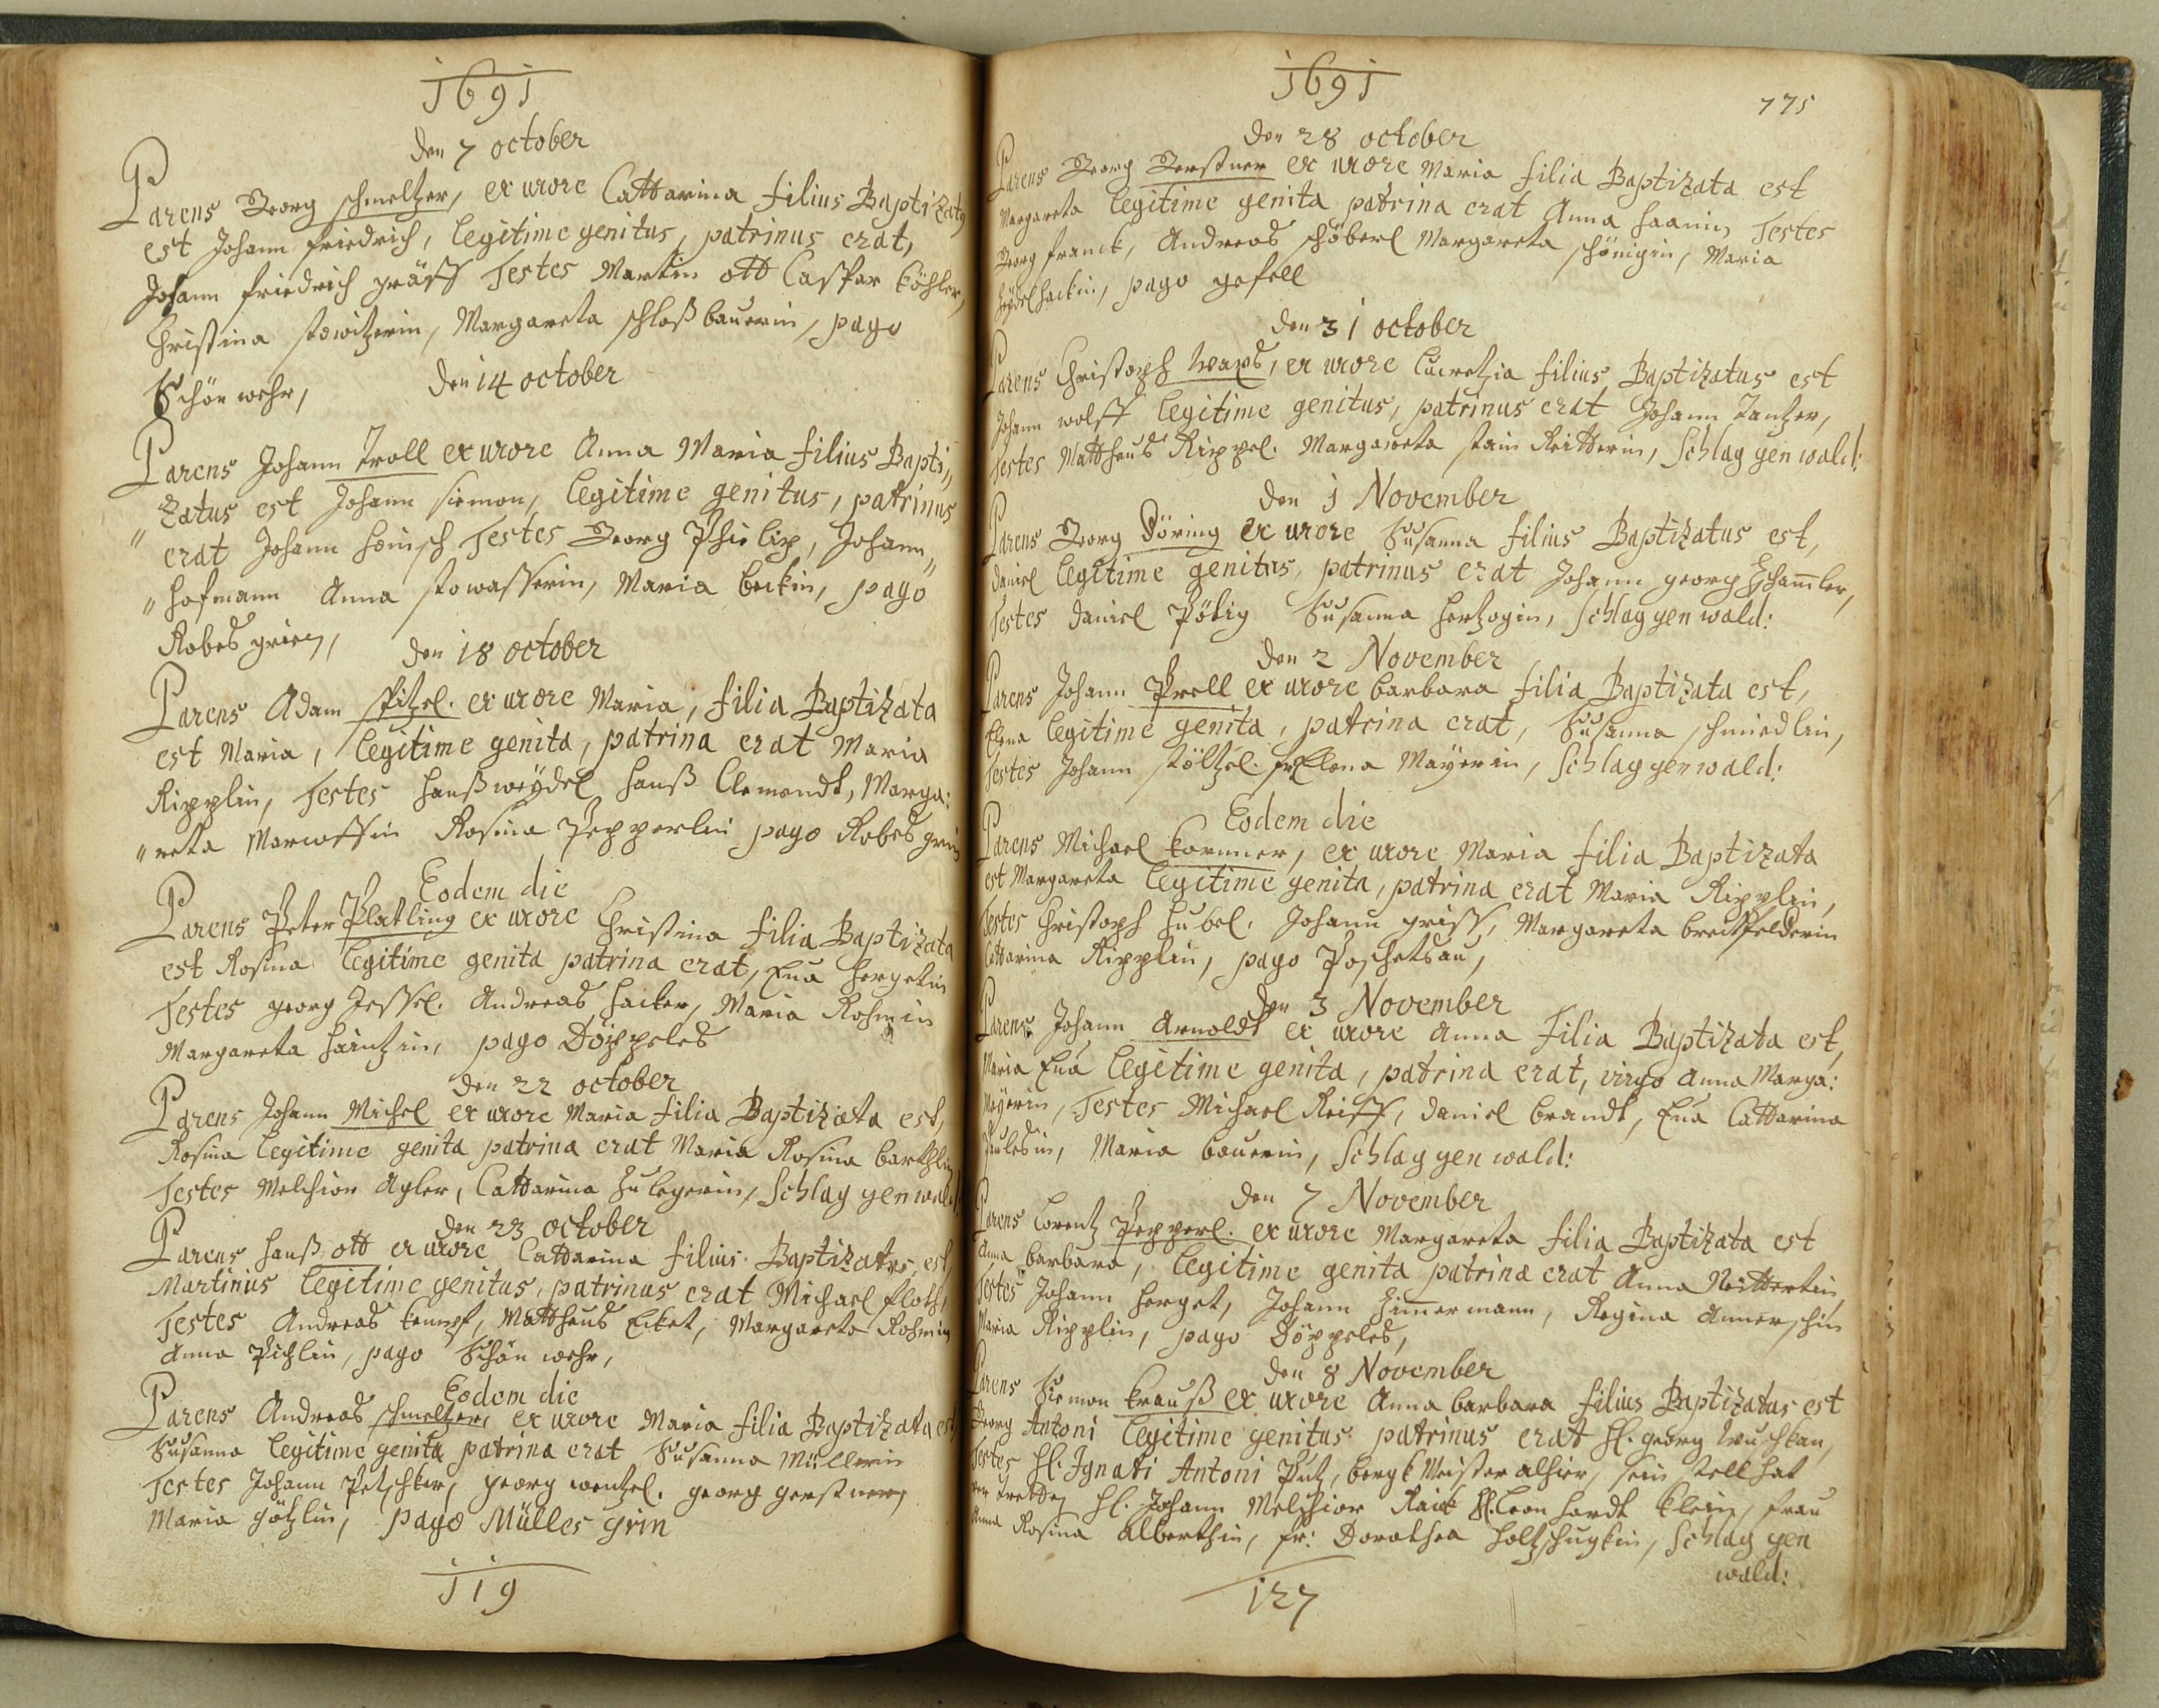 1691
den 7 october
Parens Georg schmeltzer, ex uxore Cattarina filius Baptizatus
est Johann friedrich, legitime genitus, patrinus erat,
Johann friedrich gräff Testes Martin ott Caspar köhler,
Christina stowitzerin, Margareta schloßbauerin, pago
Schönwehr,
den 14 october
Parens Johann Troll ex uxore Anna Maria filius Bapti„
„zatus est Johann siemon, legitime genitus, patrinus
erat Johann hönisch Testes Georg Philip, Johann„
„hofmann Anna stowasserin, Maria beckin, pago
Robesgrien,
den 18 october
Parens Adam spitzel. ex uxore Maria, filia Baptizata
est Maria, legitime genita, patrina erat Maria
Ripplin, Testes hanß weydel hanß Clemendt, Marga:
„reta Rosina Pepperlin pago Robesgrin
Eodem die
Parens Peter Platling ex uxore Christina filia Baptizata
est Rosina legitime genita patrina erat, Eua hergetin
Testes georg Jessel. Andreas hacker, Maria Rohmin
Margareta haintzin, pago Döppeles
den 22 october
Parens Johann Michel ex uxore Maria filia Baptizata est,
Rosina legitime genita patrina erat Maria Rosina barthlin
Testes Melchior Agler, Cattarina hulegerin, Schlaggenwald
den 23 october
Parens hanß ott ex uxore Cattarina filius Baptizatus est,
Martinus legitime genitus, patrinus erat Michael floth,
Testes Andreas kempf, Mattheus Ecket, Margareta Rohmin
Anna Pichlin, pago Schönwehr,
Eodem die
Parens Andreas schmeltzer, ex uxore Maria filia Baptizata est
Susanna legitime genita patrina erat Susanna Müllerin
Testes Johann Petschker, georg wentzel. georg gerstner,
Maria götzlin, pago Mülles grin
119
1691
775
den 28 october
Parens Georg Gerstner ex uxore Maria filia Baptizata est
Margareta legitime genita patrina erat Anna haanin, Testes
Georg franck, Andreas schöberl Margareta schönigin, Maria
pago gefell
den 31 october
Parens Christoph ex uxore Lucretzia filius Baptizatus est
Johann wolff legitime genitus, patrinus erat Johann Tantzer,
Testes Mattheus Rippel. Margareta stain Reitterin, Schlaggenwald:
den 1 November
Parens Georg Döring ex uxore Susanna filius Baptizatus est,
Daniel legitime genitus, patrinus erat Johann georg
Testes Daniel Pöhig Susanna hertzogin, Schlaggenwald:
den 2 November
Parens Johann Prell ex uxore barbara filia Baptizata est,
Elena legitime genita, patrina erat, Susanna schmiedlin,
Testes Johann stöltzel. fr Elena Mayerin, Schlaggenwald:
Eodem die
Parens Michael kormner, ex uxore Maria filia Baptizata
est Margareta legitime genita, patrina erat Maria Ripplin,
Testes Christoph hubel. Johann griss, Margareta breitfelderin
Cattarina Ripplin, pago Poschetzau,
den 3 November
Parens Johann Arnoldt ex uxore Anna filia Baptizata est,
Maria Eua legitime genita, patrina erat, virgo Anna Marga:
Mayerin, Testes Michael Reiff, Daniel brandt, Eua Cattarina
Paulesin, Maria bauerin, Schlaggenwald:
den 7 November
Parens Lorentz Pepperl. ex uxore Margareta filia Baptizata est
Anna barbara, legitime genita patrina erat Anna
Testes Johann herget, Johann Zimermann, Regina Annerschin
Maria Ripplin, pago Döppeles,
den 8 November
Parens Siemon krauß ex uxore Anna barbara filius Baptizatus est
Georg Antoni legitime genitus patrinus erat H. georg
Testes H. Ignati Antoni Putz, bergkMeister alhier, sein stell hat
vertretten H. Johann Melchior H. Leonhardt klein, frau
Anna Rosina Alberthin, fr: Dorothea holtzschugkin, Schlaggen
wald:
127